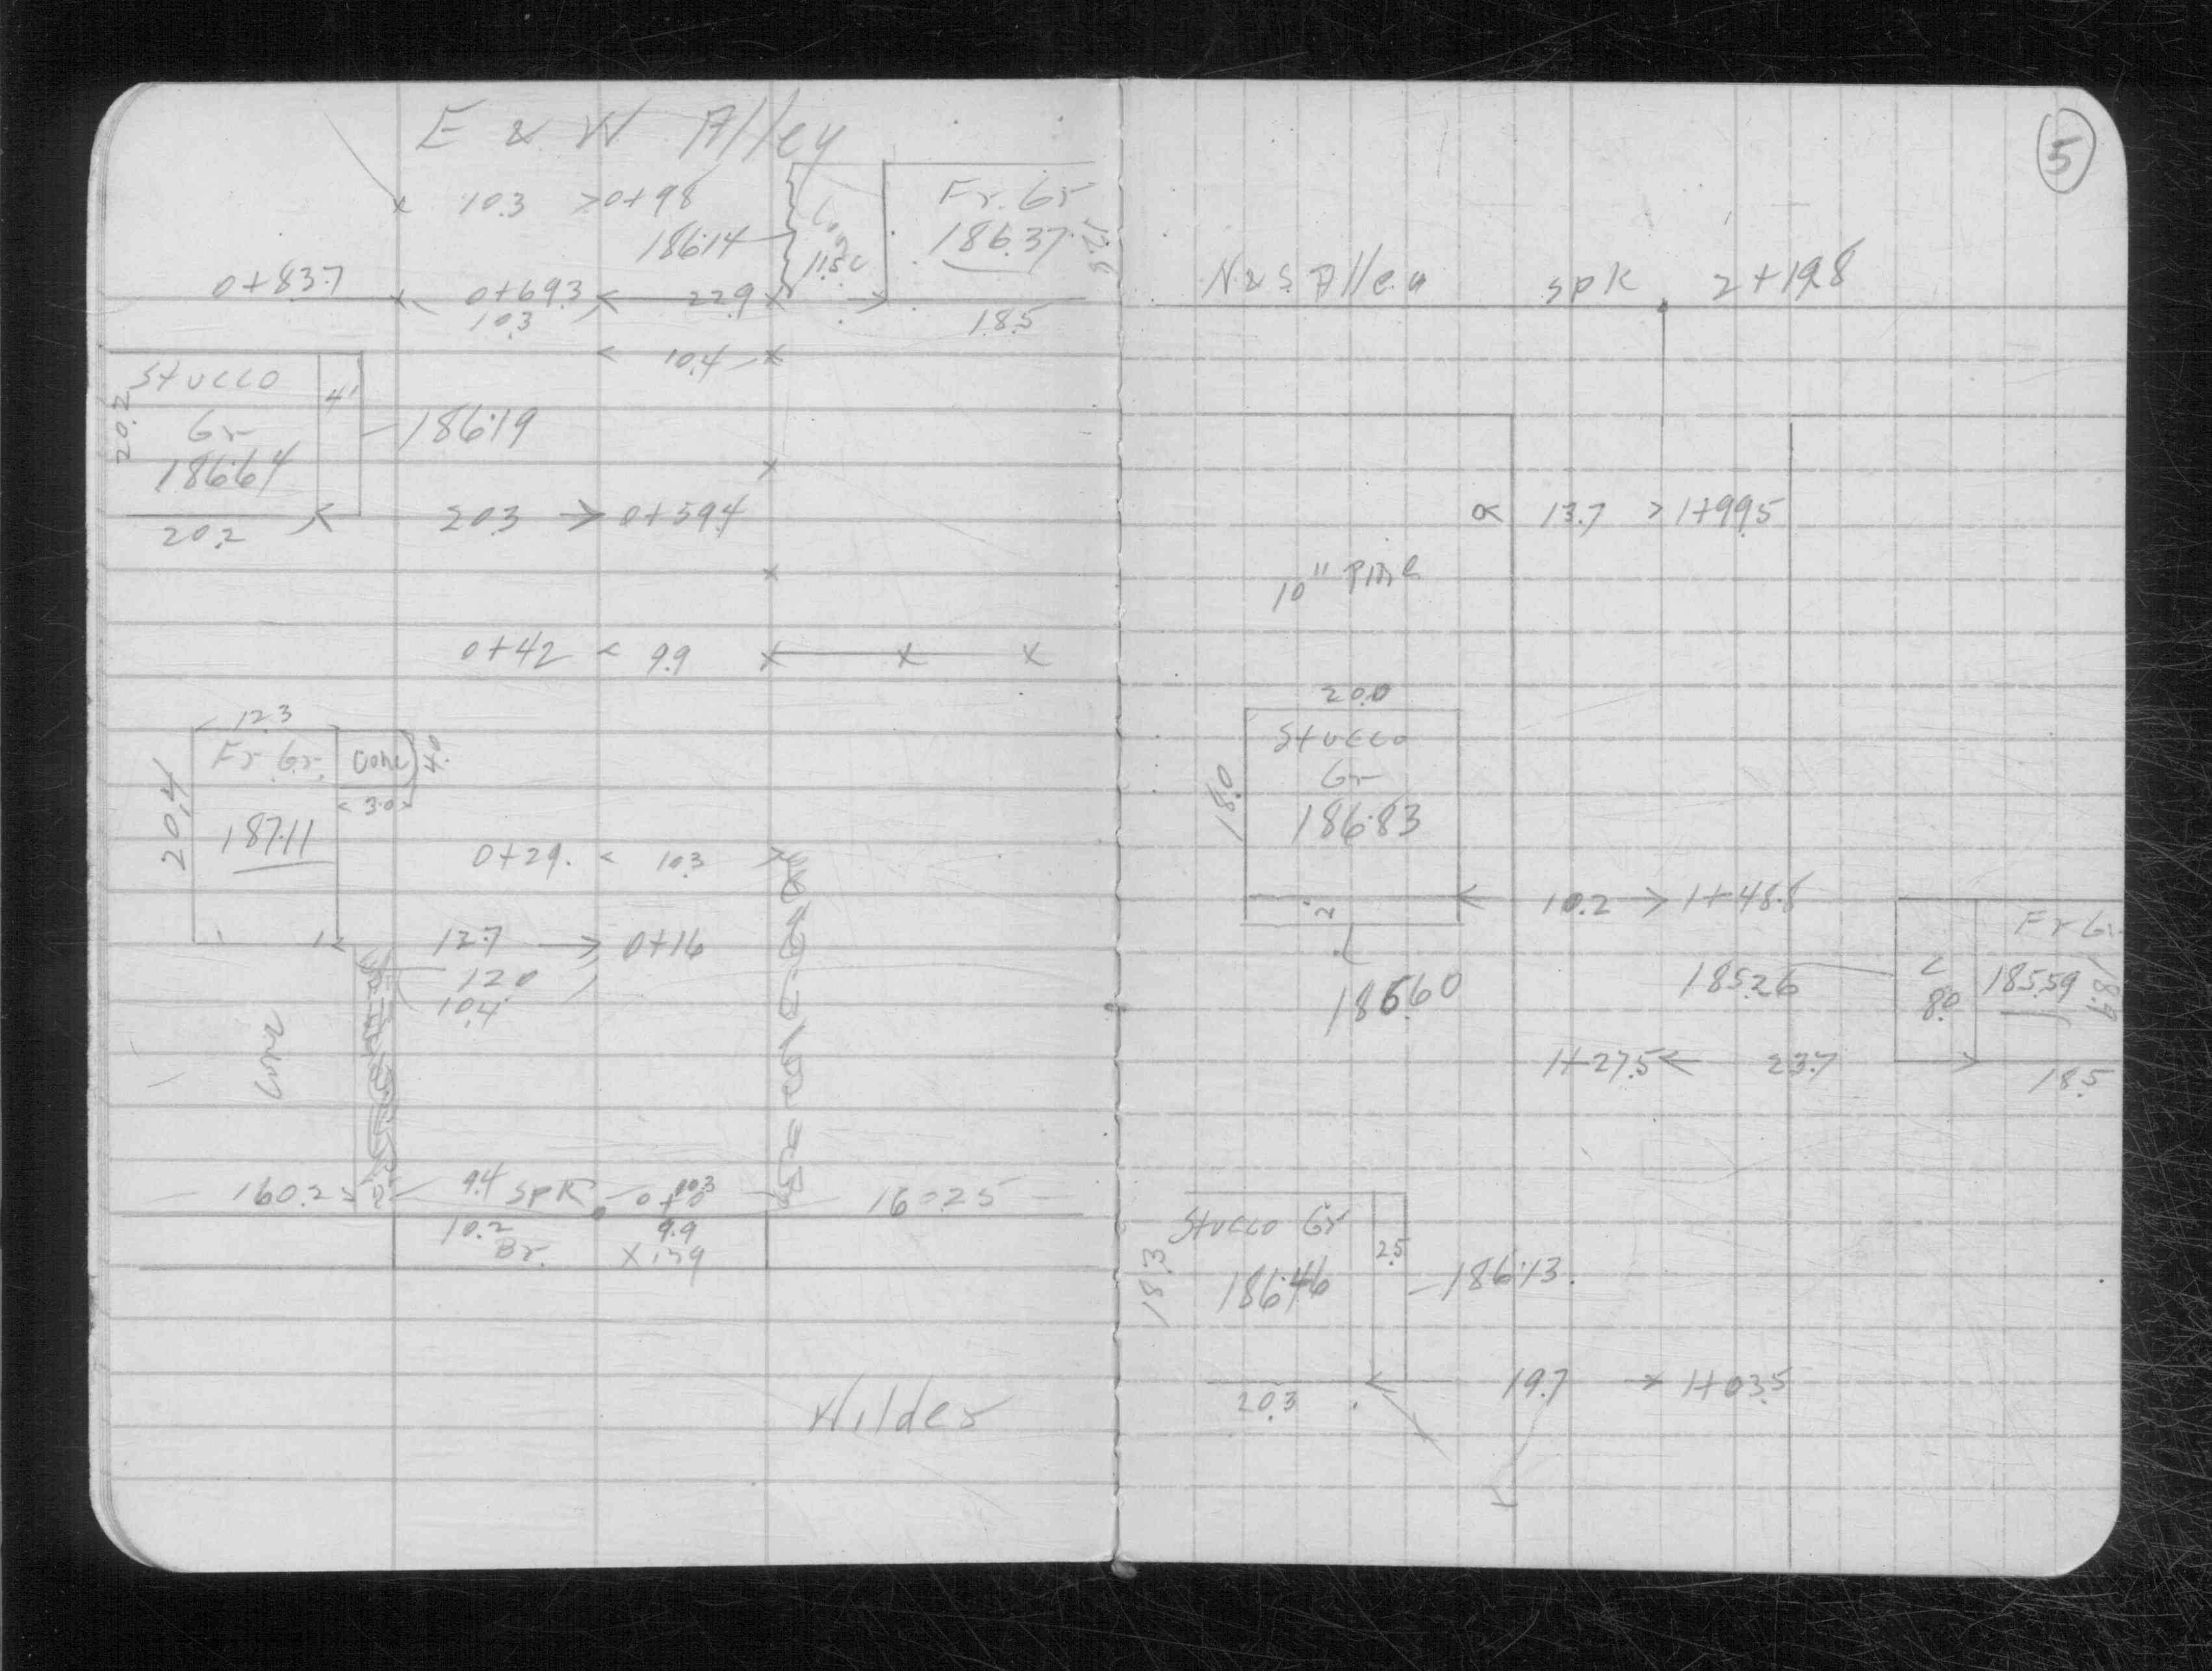 E & W Alley
10.3 > 0+98
186.14
Conc
11.5 c
Fr. Gr
186.37
12.8
0+83.7
0+69.3 < 22.9
10.3
18.5
< 10.4
Stucco
Gr
186.64
20.2
4'
186.19
20.2
20.3 → 0+59.4
0+42 < 9.9
12.3
Fr. Gr.
Conc
4.0
3.0
20.4
187.11
0+29. < 10.3 >
12.7 → 0+16
12.0
10.4
Conc
160.2
9.4 SPK 0+0
10.3
160.25
10.2
Br.
9.9
Wilder
5
N & S Alley spk 2+19.8
13.7 > 1+99.5
10" Pine
20.0
Stucco
Gr
186.83
18.0
2
10.2 → 1+48.8
186.60
Fr Gr
185.26
c
8.0
185.59
18.9
1+27.5 ← 23.7
18.5
Stucco Gr
186.46
18.3
2.5
186.13.
20.3
19.7 → 1+03.5